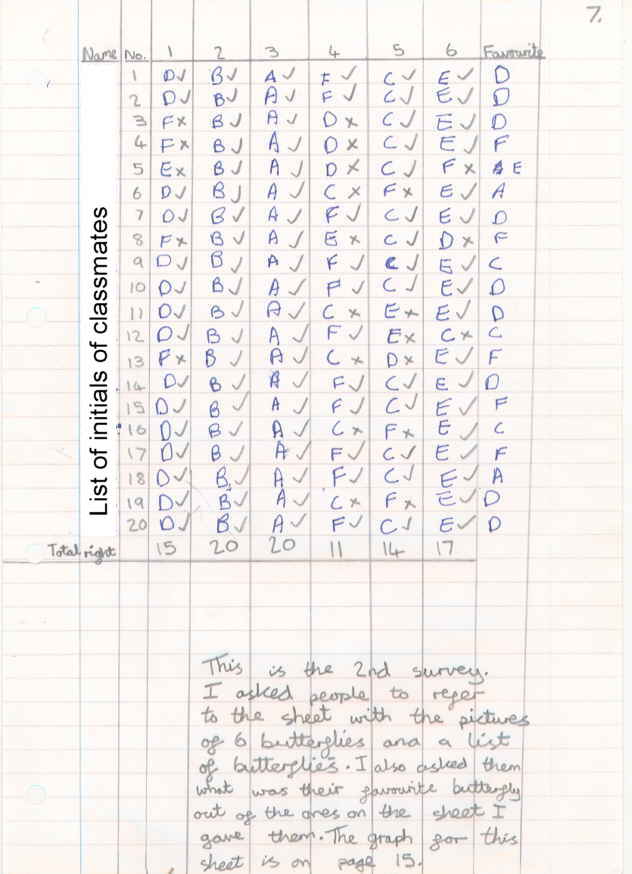 7.
Name No. 1 2 3 4 5 6 Favourite
List of initials of classmates
1 D✓ B✓ A✓ F✓ C✓ E✓ D
2 D✓ B✓ A✓ F✓ C✓ E✓ D
3 Fx B✓ A✓ Dx C✓ E✓ D
4 Fx B✓ A✓ Dx C✓ E✓ F
5 Ex B✓ A✓ Dx C✓ Fx E
6 D✓ B✓ A✓ Cx Fx E✓ A
7 D✓ B✓ A✓ F✓ C✓ E✓ D
8 Fx B✓ A✓ Ex C✓ Dx F
9 D✓ B✓ A✓ F✓ C✓ E✓ C
10 D✓ B✓ A✓ F✓ C✓ E✓ D
11 D✓ B✓ A✓ Cx Ex E✓ D
12 D✓ B✓ A✓ F✓ Ex Cx C
13 Fx B✓ A✓ Cx Dx E✓ F
14 D✓ B✓ A✓ F✓ C✓ E✓ D
15 D✓ B✓ A✓ F✓ C✓ E✓ F
16 D✓ B✓ A✓ Cx Fx E✓ C
17 D✓ B✓ A✓ F✓ C✓ E✓ F
18 D✓ B✓ A✓ F✓ C✓ E✓ A
19 D✓ B✓ A✓ Cx Fx E✓ D
20 D✓ B✓ A✓ F✓ C✓ E✓ D
Total right 15 20 20 11 14 17
This is the 2nd survey.
I asked people to refer
to the sheet with the pictures
of 6 butterflies and a list
of butterflies. I also asked them
what was their favourite butterfly
out of the ones on the sheet I
gave them. The graph for this
sheet is on page 15.